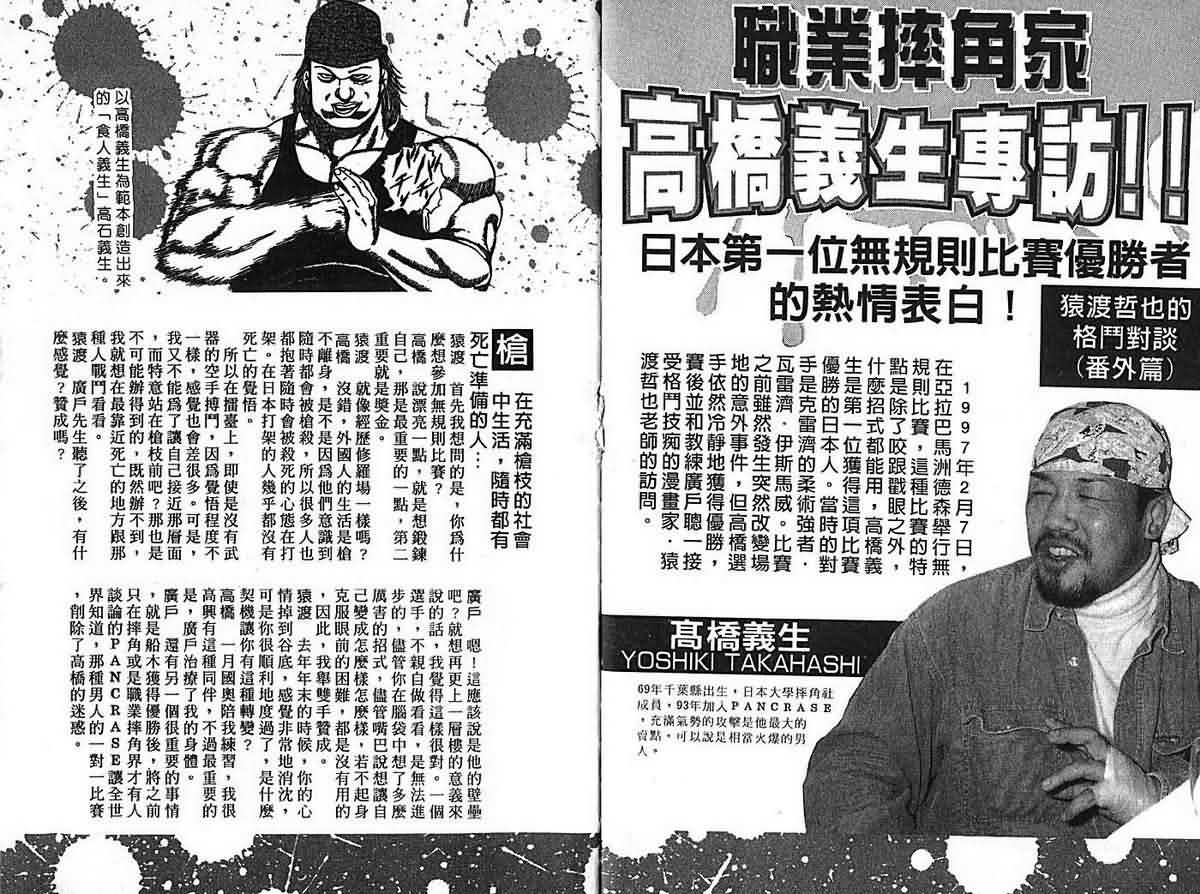 職業摔角家
高橋義生專訪!!
日本第一位無規則比賽優勝者
的熱情表白！
猿渡哲也的
格鬥對談
（番外篇）
1997年2月7日，
在亞拉巴馬洲德森舉行無
規則比賽，這種比賽的特
點是除了咬跟戳眼之外，
什麼招式都能用，高橋義
生是第一位獲得這項比賽
優勝的日本人。當時的對
手是克雷濟的柔術強者．
瓦雷濟．伊斯馬威。比賽
之前雖然發生突然改變場
地的意外事件，但高橋選
手依然冷靜地獲得優勝，
賽後並和教練廣戶聰一接
受格鬥技痴的漫畫家．猿
渡哲也老師的訪問。
髙橋義生
YOSHIKI TAKAHASHI
69年千葉縣出生，日本大學摔角社
成員，93年加入PANCRASE
，充滿氣勢的攻擊是他最大的
賣點，可以說是相當火爆的男
人。
以高橋義生為範本創造出來
的「食人義生」高石義生。
槍 在充滿槍枝的社會
中生活，隨時都有
死亡準備的人…
猿渡 首先我想問的是，你為什
麼想參加無規則比賽？
高橋 說漂亮一點，就是想鍛鍊
自己，那是最重要的一點，第二
重要就是獎金。
猿渡 就像經歷修羅場一樣嗎？
高橋 沒錯，外國人的生活是槍
不離身，是不是因為他們意識到
隨時都會被槍殺，所以很多人也
都抱著隨時會被殺死的心態在打
架。在日本打架的人幾乎都沒有
死亡的覺悟。
所以在擂臺上，即使是沒有武
器的空手搏鬥，因爲覺悟程度不
一樣，感覺也會差很多。可是，
我又不能爲了讓自己接近那層面
，而特意站在槍枝前吧？那也是
不可能辦得到的，既然辦不到，
我就想在最靠近死亡的地方跟那
種人戰鬥看看。
猿渡 廣戶先生聽了之後，有什
麼感覺？贊成嗎？
廣戶 嗯！這應該說是他的壁壘
吧？就想再更上一層樓的意義來
說的話，我覺得這樣很對。一個
選手，不親自做看看，是無法進
步的，儘管你在腦袋中想了多麼
厲害的招式，儘管嘴巴說想讓自
己變成怎麼樣怎麼樣，若不起身
克服眼前的困難，都是沒有用的
，因此，我舉雙手贊成。
猿渡 去年年末的時候，你的心
情掉到谷底，感覺非常地消沈，
可是你很順利地度過了，是什麼
契機讓你有這種轉變？
高橋 一月國奧陪我練習，我很
高興有這種同伴，不過最重要的
是，廣戶治療了我的身體。
廣戶 還有另一個很重要的事情
，就是船木獲得優勝後，將之前
只在摔角或是職業摔角界才有人
談論的PANCRASE讓全世
界知道，那種男人的一對一比賽
，削除了高橋的迷惑。